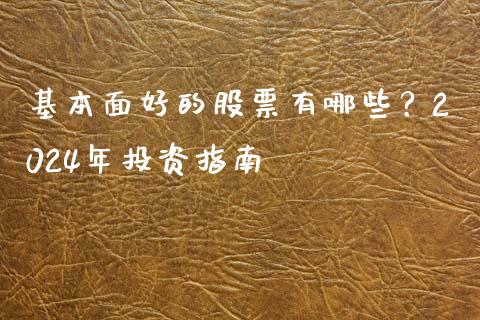 基本面好的股票有哪些？2
024年投资指南